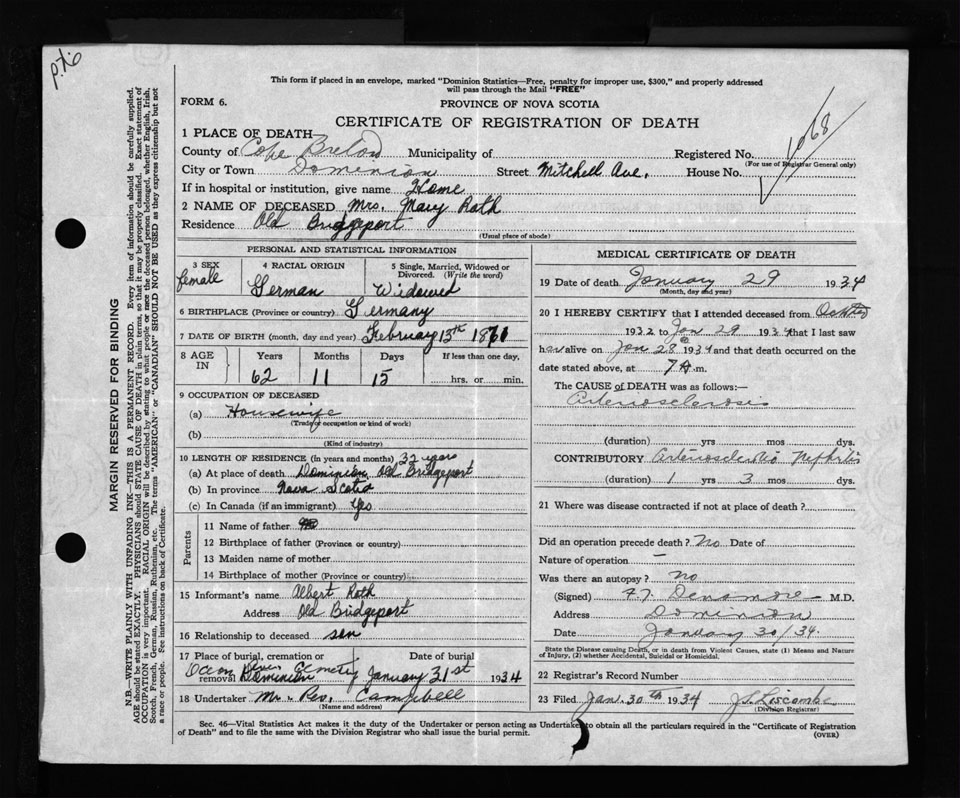 This form if placed in an envelope, marked "Dominion Statistics—Free, penalty for improper use, $300," and properly addressed
will pass through the Mail "FREE"
FORM 6.
PROVINCE OF NOVA SCOTIA
CERTIFICATE OF REGISTRATION OF DEATH
1068
1 PLACE OF DEATH
County of Cape Breton Municipality of Registered No.
(For use of Registrar General only)
City or Town Dominion Street Mitchell Ave. House No.
If in hospital or institution, give name Home
2 NAME OF DECEASED Mrs. Mary Roth
Residence Old Bridgeport
(Usual place of abode)
PERSONAL AND STATISTICAL INFORMATION
3 SEX 4 RACIAL ORIGIN 5 Single, Married, Widowed or Divorced. (Write the word)
female German Widowed
6 BIRTHPLACE (Province or country) Germany
7 DATE OF BIRTH (month, day and year) February 13th 1871
8 AGE IN Years Months Days If less than one day,
62 11 15 hrs. or min.
9 OCCUPATION OF DECEASED
(a) Housewife
(Trade or occupation or kind of work)
(b)
(Kind of industry)
10 LENGTH OF RESIDENCE (in years and months) 32 years
(a) At place of death Dominion, Old Bridgeport
(b) In province Nova Scotia
(c) In Canada (if an immigrant) Yes
Parents
11 Name of father
12 Birthplace of father (Province or country)
13 Maiden name of mother
14 Birthplace of mother (Province or country)
15 Informant's name Albert Roth
Address Old Bridgeport
16 Relationship to deceased son
17 Place of burial, cremation or removal Date of burial
Ocean View Cemetery Dominion January 31st 1934
18 Undertaker Mr. Campbell
(Name and address)
MEDICAL CERTIFICATE OF DEATH
19 Date of death January 29 1934
(Month, day and year)
20 I HEREBY CERTIFY that I attended deceased from
1932 to Jan 29 1934 that I last saw
her alive on Jan 28th 1934 and that death occurred on the
date stated above, at 7 A.m.
The CAUSE of DEATH was as follows:—
Arteriosclerosis
(duration) yrs mos dys.
CONTRIBUTORY Arteriosclerotic Nephritis
(duration) 1 yrs 3 mos dys.
21 Where was disease contracted if not at place of death?
Did an operation precede death? No Date of
Nature of operation —
Was there an autopsy? no
(Signed) Densmore M.D.
Address Dominion
Date January 30/34.
State the Disease causing Death, or in death from Violent Causes, state (1) Means and Nature
of Injury, (2) whether Accidental, Suicidal or Homicidal.
22 Registrar's Record Number
23 Filed Jan. 30th 1934 J. Liscombe
(Division Registrar)
Sec. 46—Vital Statistics Act makes it the duty of the Undertaker or person acting as Undertaker to obtain all the particulars required in the "Certificate of Registration
of Death" and to file the same with the Division Registrar who shall issue the burial permit.
(OVER)
MARGIN RESERVED FOR BINDING
N.B.—WRITE PLAINLY WITH UNFADING INK—THIS IS A PERMANENT RECORD. Every item of information should be carefully supplied.
AGE should be stated EXACTLY. PHYSICIANS should STATE CAUSE OF DEATH in plain terms, so that it may be properly classified. Exact statement of
OCCUPATION is very important. RACIAL ORIGIN will be described by stating to what people or race the deceased person belonged, whether English, Irish,
Scotch, French, German, Russian, Ruthenian, etc. The terms "AMERICAN" or "CANADIAN" SHOULD NOT BE USED as they express citizenship but not
a race or people. See instructions on back of Certificate.